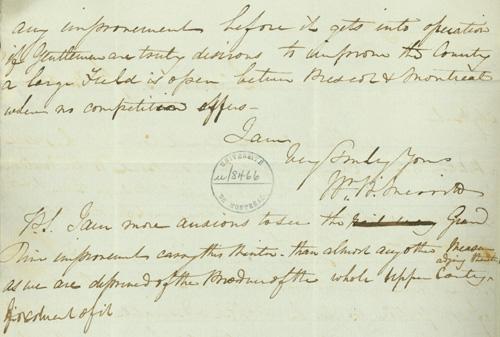 any improvement before it gets into operation
if Gentlemen are truly desirous to improve the Country
a large Field is open between Prescot & Montreal
where no competition offers –
I am
Very Truly Yours
Wm. H. Merritt
UNIVERSITÉ
u/8466
DE MONTRÉAL
P.S. I am more anxious to see the Grand
River improvement carry this Winter than almost any other
as we are deprived of the Produce of the whole upper Country
for want of it